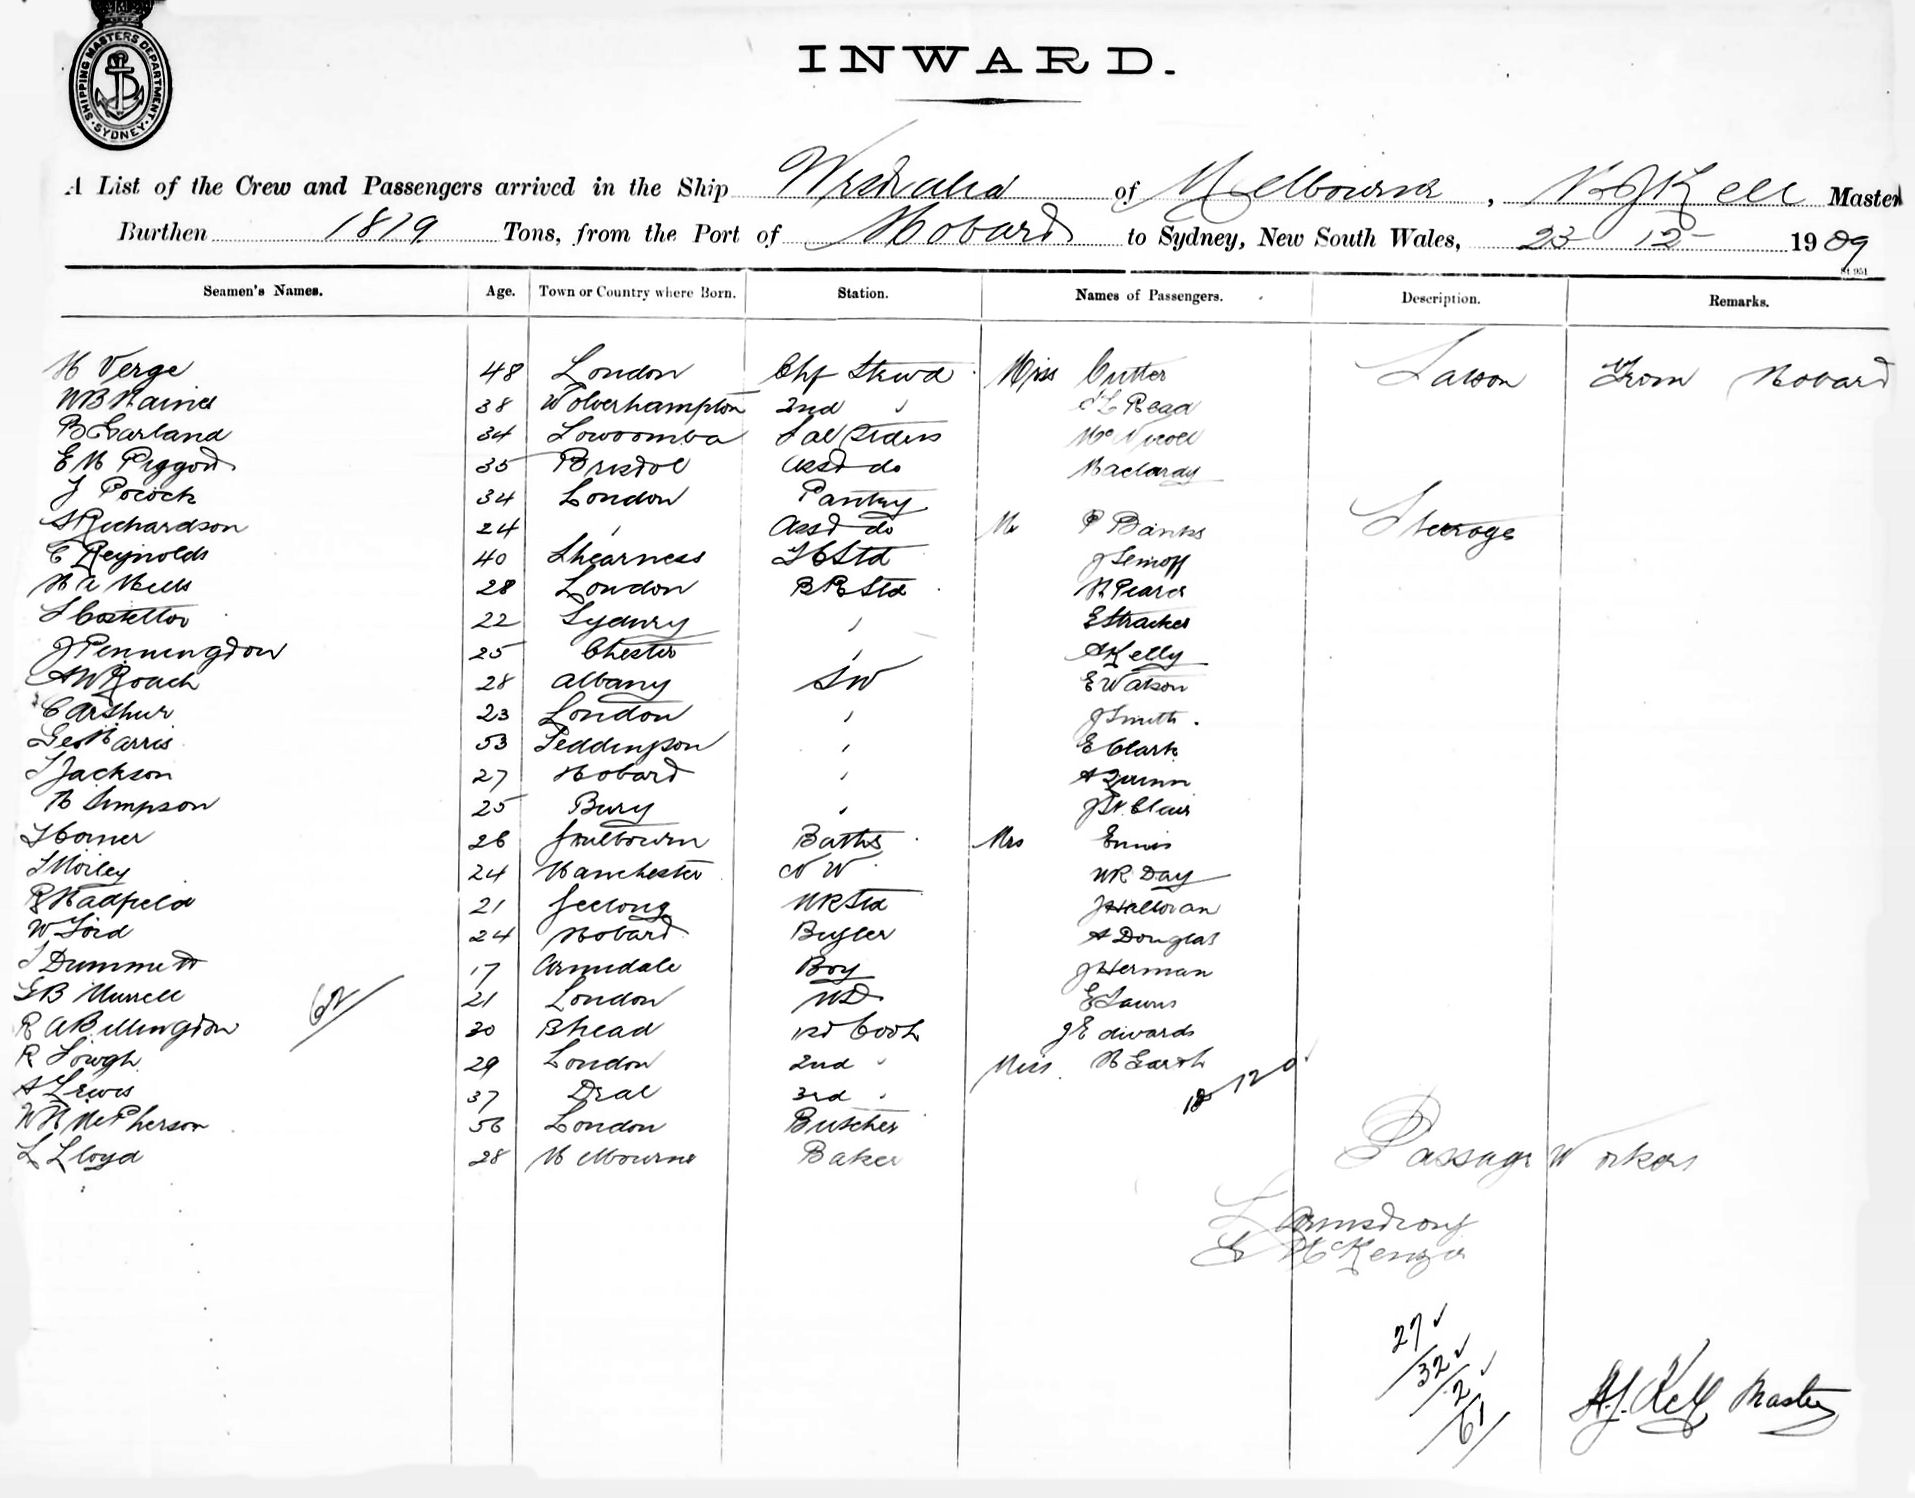 SHIPPING MASTERS DEPARTMENT. SYDNEY.
INWARD.
A List of the Crew and Passengers arrived in the Ship Westralia of Melbourne, H J Kell Master
Burthen 1819 Tons, from the Port of Hobart to Sydney, New South Wales, 23 - 12 - 1909
St 951
Seamen's Names. Age. Town or Country where Born. Station. Names of Passengers. Description. Remarks.
H Verge 48 London Chf Stewd Miss Cutter Saloon From Hobart
W B Haines 38 Wolverhampton 2nd " Read
B Garland 34 Towoomba Sal McNicoll
E H Piggott 35 Bristol Asst do
J Pocock 34 London Pantry
S Richardson 24 " Asst do Mr P Banks Steerage
C Reynolds 40 Shearness Std J
H A Mills 28 London B R Std H Pearce
T Costello 22 Sydney " E Straches
J Pennington 25 Chester " A Kelly
A W Roach 28 Albany S W E Watson
C Arthur 23 London " J Smith
Geo Harris 53 Teddington " E Clark
T Jackson 27 Hobart " A Quinn
H Simpson 25 Bury " J St. Clair
T Comer 26 Goulbourn Baths Mrs Ennis
T Morley 24 Manchester W W R Day
R Hadfield 21 Geelong W R Std J Halloran
W Ford 24 Hobart Bugler A Douglas
T Dummett 17 Armidale Boy J Herman
G B Murrell 21 London E
R A Billington 30 Bhead 1st Cook J Edwards
R Gough 29 London 2nd " Miss H Garth
A Lewis 37 Deal 3rd "
W H McPherson 56 London Butcher
L Lloyd 28 Melbourne Baker
62
18 12 0
Passage Workers
L Armstrong
G McKenzie
27
32
2
61
H.J. Kell Master